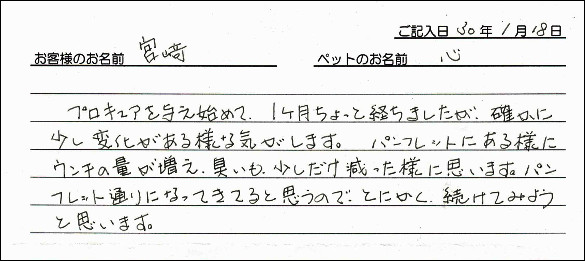 ご記入日 30年 1月 18日
お客様のお名前 宮﨑 ペットのお名前 心
プロキュアを与え始めて、1ヶ月ちょっと経ちましたが、確かに
少し変化がある様な気がします。 パンフレットにある様に
ウンチの量が増え、臭いも、少しだけ減った様に思います。パン
フレット通りになってきてると思うので、とにかく、続けてみよう
と思います。